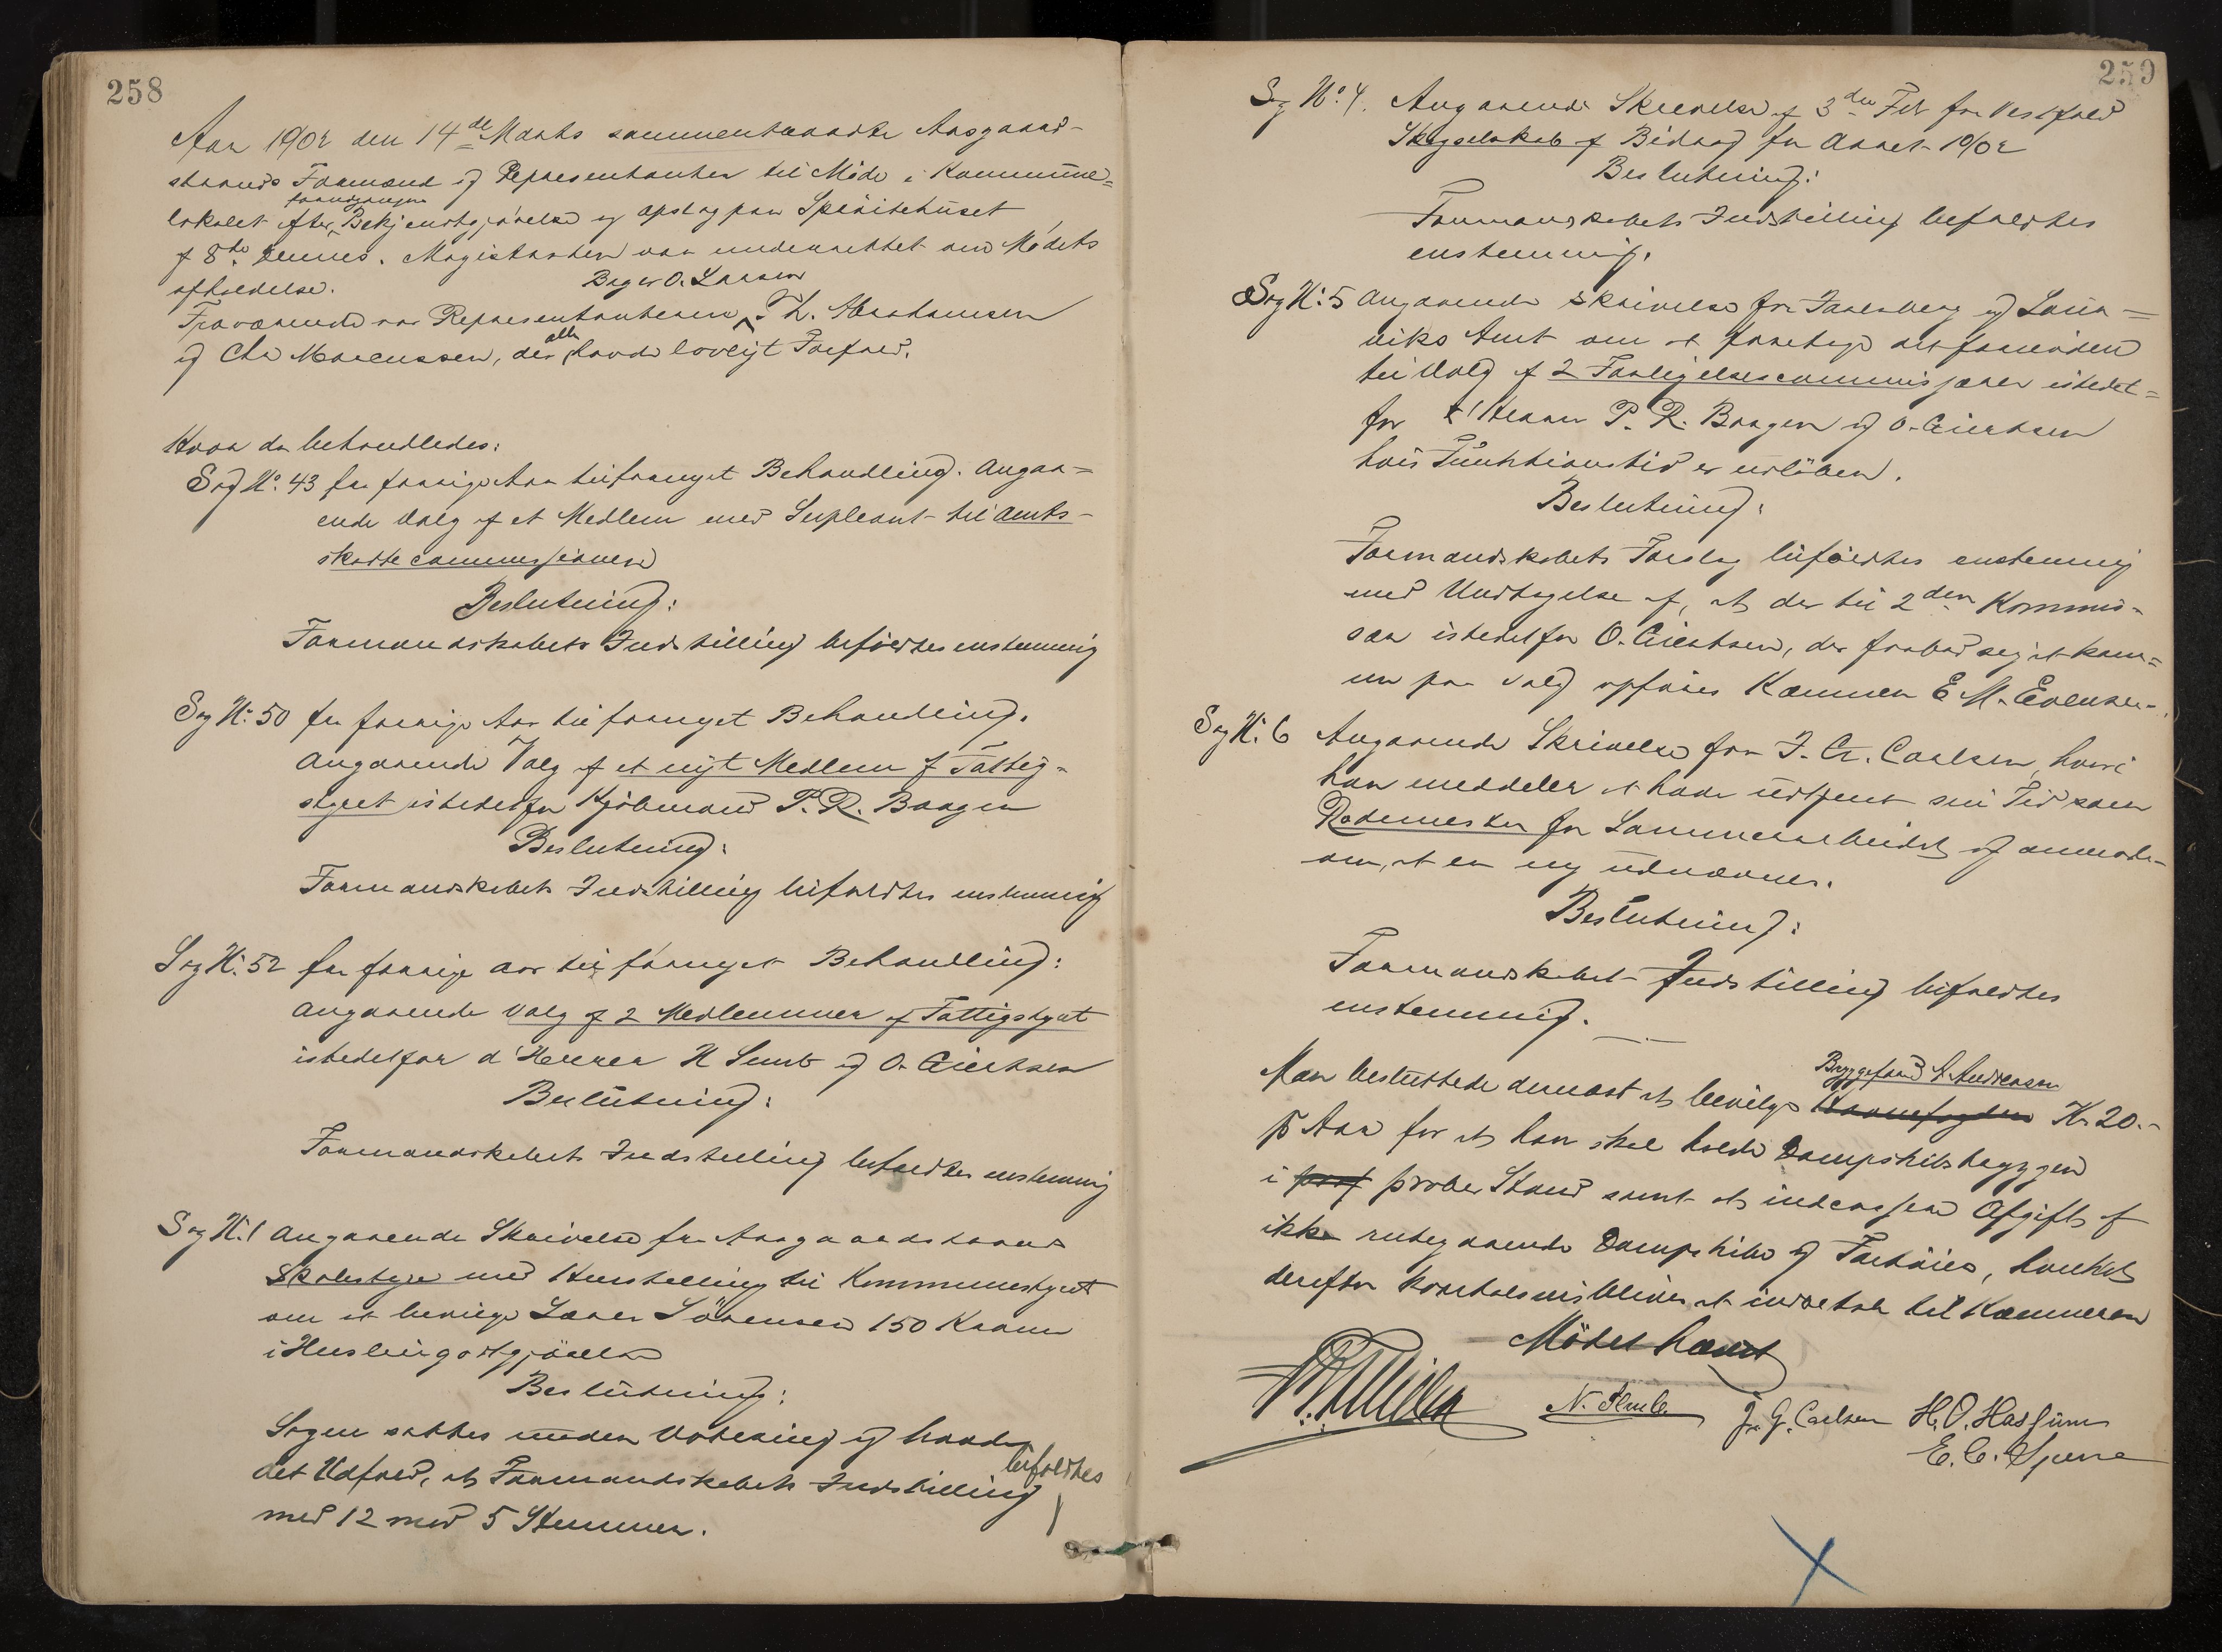 258
Aar 1902 den 14de Marts sammentraadte Aasgaard-
strands Formænd og Repræsentanter til Møde i Kommune-
lokalet efter forudgaaende Bekjendtgjørelse og opslag paa Sprøitehuset
af 8de dennes. Magistraten var underrettet om Mødets
afholdelse.
Fraværende var Repræsentanterne Bager O. Larsen Th. Abrahamsen
og Chr Marcussen, der alle havde lovligt Forfald.
Hvor da behandledes:
Sag No. 43 fra forrige Aar til fornyet Behandling. Angaa-
ende Valg af et Medlem med Supleant til Amts-
skattecommissionen
Beslutning:
Formandskabets Indstilling bifaldtes enstemmig
Sag No. 50 fra forrige Aar til fornyet Behandling.
Angaaende Valg af et nyt Medlem af Fattig-
styret istedetfor Kjøbmand P. R. Baagen
Beslutning:
Formandskabets Indstilling bifaldtes enstemmig
Sag No. 52 fra forrige Aar til fornyet Behandling:
Angaaende Valg af 2 Medlemmer af Fattigstyret
istedetfor d'Herrer N Semb og O. Giertsen
Beslutning:
Formandskabets Indstilling bifaldtes enstemmig
Sag No. 1 Angaaende Skrivelse fra Aasgaardstrands
Skolestyre med Henstilling til Kommunestyret
om at bevilge Lærer Sörensen 150 Kroner
i Huslejegodtgjörelse
Beslutning:
Sagen sattes under Votering og havde
det Udfald, at Formandskabets Indstilling bifaldtes
med 12 mod 5 Stemmer.
259
Sag No. 4. Angaaende Skrivelse af 3die Febr fra Vestfold
Skogselskab af Bidrag for Aaret 1902
Beslutning:
Formandskabets Indstilling bifaldtes
enstemmig.
Sag No. 5 Angaaende Skrivelse fra Jarlsberg og Laur-
viks Amt om at foretage det fornødne
til Valg af 2 Forligelsescommissærer istedet-
for d'Herrer P. R. Baagen og O. Giertsen
hvis Funktionstid er udløben.
Beslutning:
Formandskabets Forslag bifaldtes enstemmig
med Undtagelse af, at der til 2den Kommis-
sær istedetfor O. Giertsen, der frabad sig at kom-
me paa Valg opføres Kæmner E M. Evensen.
Sag No. 6 Angaaende Skrivelse fra J. G. Carlsen, hvori
han meddeler at have udtjent sin Tid som
Rodemester for Sommerarbeidet og anmode-
om, at en ny udnævnes.
Beslutning:
Formandskabet Indstilling bifaldtes
enstemmig.
Man besluttede dernæst at bevilge Havnefogden Bryggefoged A. Andreasen Kr 20.-
pr Aar for at han skal holde Dampskibsbryggen
i proper Stand samt at indcassere Afgift af
ikke rutegaaende Dampskibe og Fartøier, hvilket
derefter kvartalsvis bliver at indbetale til Kæmneren
Mödet hævet
N. Semb. J. G. Carlsen H. O. Hasfjum
E. C. Spure